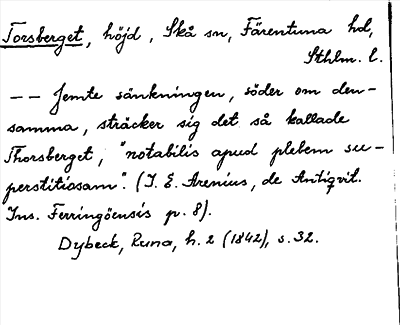 Torsberget, höjd, Skå sn, Färentuna hd,
Sthlm. l.
-- Jemte sänkningen, söder om den-
samma, sträcker sig det så kallade
Thorsberget, "notabilis apud plebem su-
perstitiosam". (J. E. Arenius, de Antiqvit.
Ins. Ferringöensis p. 8).
Dybeck, Runa, h. 2 (1842), s. 32.